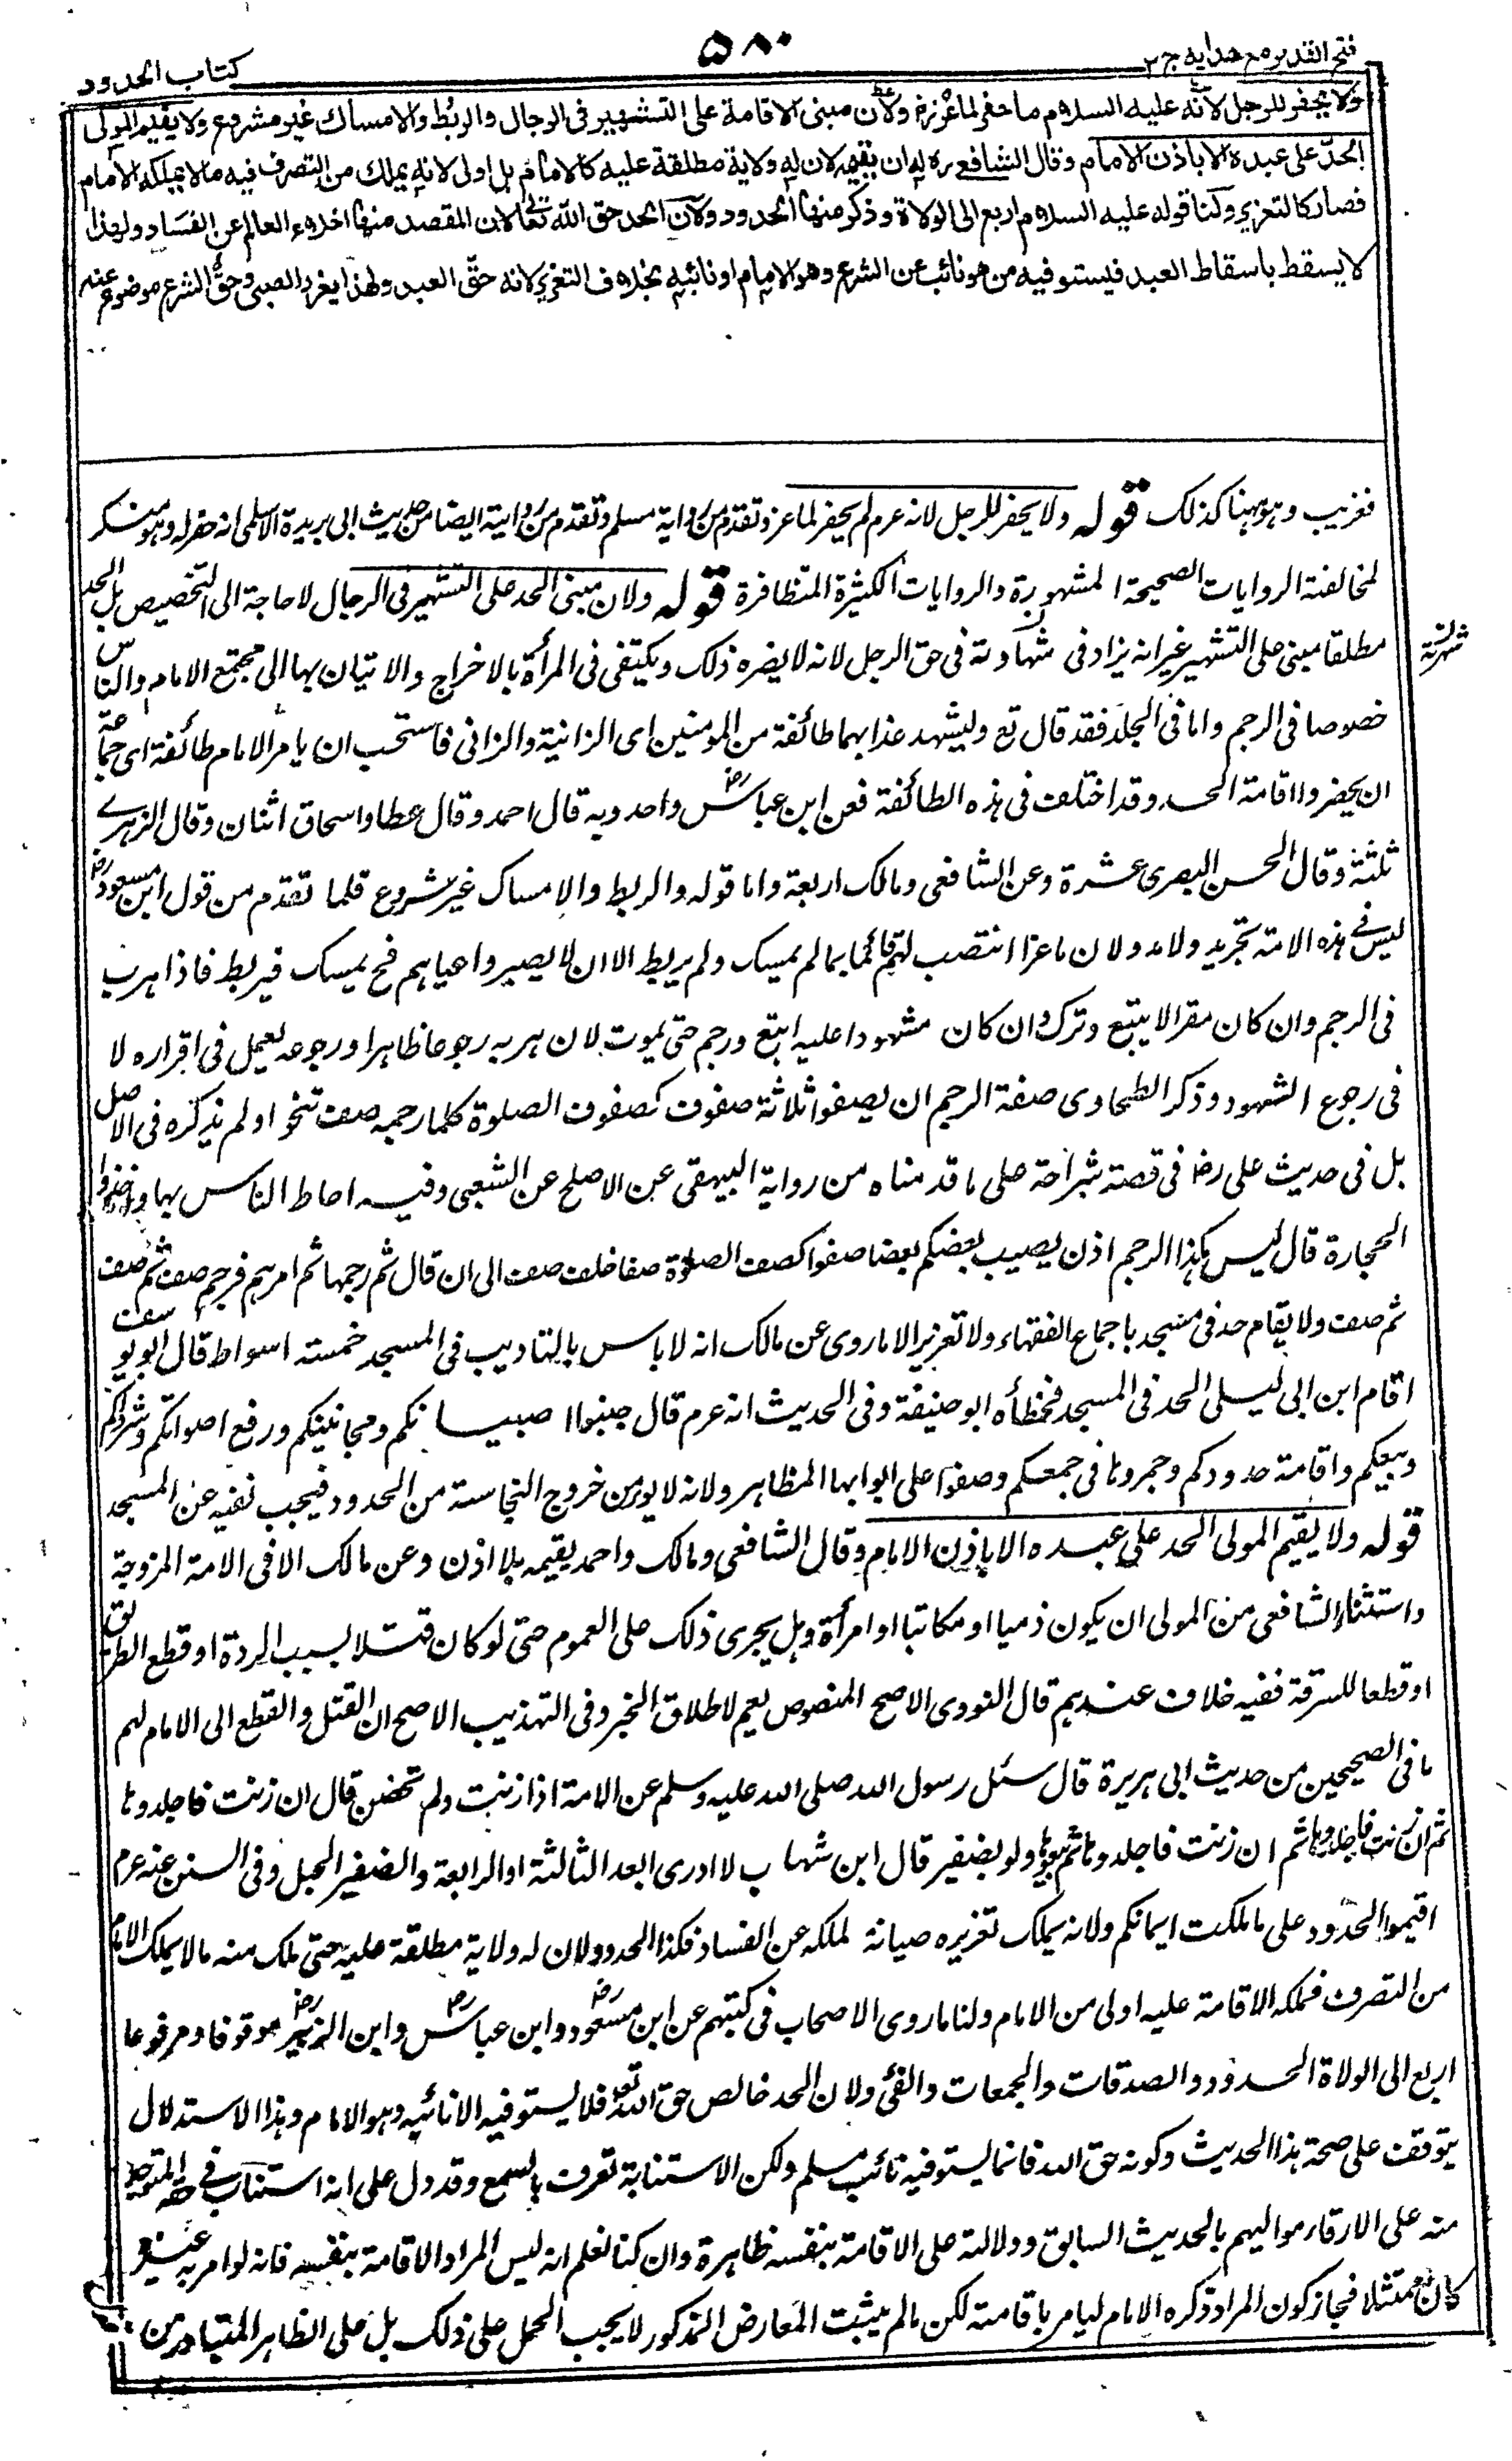 فتح القدير مع هدايه ج ٢
٥٨٠
كتاب الحدود
ولا يحفر للرجل لانه عليه السلام ما حفر لماعز رض ولان مبنى الاقامة على التشهير فى الرجال والربط والامساك غير مشروع ولا يقيم المولى
الحد على عبده الا باذن الامام وقال الشافعى ره له ان يقيمه لان له ولاية مطلقة عليه كالامام بل اولى لانه يملك من التصرف فيه مالا يملكه الامام
فصار كالتعزير ولنا قوله عليه السلام اربع الى الولاة وذكر منها الحدود ولان الحد حق الله تعالى لان المقصد منها اخلاء العالم عن الفساد ولهذا
لا يسقط باسقاط العبد فيستوفيه من هو نائب عن الشرع وهو الامام او نائبه بخلاف التعزير لانه حق العبد ولهذا يعزر الصبى وحق الشرع موضوع عنه
فغريب وهو ههنا كذلك قوله ولا يحفر للرجل لانه عرم لم يحفر لماعز وتقدم من رواية مسلم وتقدم من روايته ايضا من حديث ابى بريدة الاسلمى انه حفر له وهو منكر
لمخالفته الروايات الصحيحة المشهورة والروايات الكثيرة المتظافرة قوله ولان مبنى الحد على التشهير فى الرجال لا حاجة الى التخصيص بل الحد
مطلقا مبنى على التشهير غير انه يزاد فى شهادته فى حق الرجل لانه لا يضره ذلك ويكتفى فى المرأة بالاخراج والاتيان بها الى مجتمع الامام والناس
شهرته
خصوصا فى الرجم واما فى الجلد فقد قال تع وليشهد عذابهما طائفة من المؤمنين اى الزانية والزانى فاستحب ان يامر الامام طائفة اى جماعة
ان يحضروا اقامة الحد وقد اختلف فى هذه الطائفة فعن ابن عباس رض واحد وبه قال احمد وقال عطا واسحاق اثنان وقال الزهرے
ثلثة وقال الحسن البصرى عشرة وعن الشافعى ومالك اربعة واما قوله والربط والامساك غير مشروع فلما تقدم من قول ابن مسعود رض
ليس فى هذه الامة تجريد ولا مد ولان ماعزا انتصب لهم قائما بما لم يمسك ولم يربط الا ان لا يصبر واعياهم فح يمسك فيربط فاذا هرب
فى الرجم وان كان مقرا لا يتبع وترك وان كان مشهودا عليه اتبع ورجم حتى يموت لان هربه رجوعا ظاهرا ورجوعه يعمل فى اقراره لا
فى رجوع الشهود وذكر الطحاوى صفة الرجم ان يصفوا ثلاثة صفوف كصفوف الصلوة كلما رجمه صف تنحوا ولم يذكره فى الاصل
بل فى حديث على رض فى قصة شراحة على ما قدمناه من رواية البيهقى عن الاصلح عن الشعبى وفيه احاط الناس بها واخذوا
الحجارة قال ليس هكذا الرجم اذن يصيب بعضكم بعضا صفوا كصف الصلوة صفا خلف صف الى ان قال ثم رجمها ثم امرهم فرجم صف ثم صف
ثم صف ولا يقام حد فى مسجد باجماع الفقهاء ولا تعزير الا ما روى عن مالك انه لا باس بالتاديب فى المسجد خمسة اسواط قال ابو يوسف
اقام ابن ابى ليلى الحد فى المسجد فخطأه ابو حنيفة وفى الحديث انه عرم قال جنبوا صبيانكم ومجانينكم ورفع اصواتكم وشراءكم
وبيعكم واقامة حدودكم وجمروها فى جمعكم وصفوا على ابوابها المظاهر ولانه لا يومن خروج النجاسة من الحدود فيجب نفيه عن المسجد
قوله ولا يقيم المولى الحد على عبده الا باذن الامام وقال الشافعى ومالك واحمد يقيمه بلا اذن وعن مالك الا فى الامة المزوجة
واستثناء الشافعى من المولى ان يكون ذميا او مكاتبا او امرأة وهل يجرى ذلك على العموم حتى لو كان قتلا بسبب الردة او قطع الطريق
او قطعا للسرقة ففيه خلاف عندهم قال النووى الاصح المنصوص نعم لاطلاق الخبر وفى التهذيب الاصح ان القتل والقطع الى الامام لهم
ما فى الصحيحين من حديث ابى هريرة قال سئل رسول الله صلى الله عليه وسلم عن الامة اذا زنت ولم تحصن قال ان زنت فاجلدوها
ثم ان زنت فاجلدوها ثم ان زنت فاجلدوها ثم بيعوها ولو بضفير قال ابن شهاب لا ادرى ابعد الثالثة او الرابعة والضفير الحبل وفى السنن عنه عرم
اقيموا الحدود على ما ملكت ايمانكم ولانه يملك تعزيره صيانة لملكه عن الفساد فكذا الحدود ولان له ولاية مطلقة عليه حتى ملك منه مالا يملك الامام
من التصرف فملكه الاقامة عليه اولى من الامام ولنا ما روى الاصحاب فى كتبهم عن ابن مسعود رض وابن عباس رض وابن الزبير رض موقوفا ومرفوعا
اربع الى الولاة الحدود والصدقات والجمعات والفئ ولان الحد خالص حق الله تع فلا يستوفيه الا نائبه وهو الامام وهذا الاستدلال
يتوقف على صحة هذا الحديث وكونه حق الله فانما يستوفيه نائب مسلم ولكن الاستنابة تعرف بالسمع وقد دل على انه استناب فى حقه المتوجه
منه على الارقاء مواليهم بالحديث السابق ودلالته على الاقامة بنفسه ظاهرة وان كنا نعلم انه ليس المراد الاقامة بنفسه فانه لو امر به غيره
كان ممتثلا فجاز كون المراد ذكره الامام ليامر باقامته لكن ما لم يثبت المعارض المذكور لا يجب الحمل على ذلك بل على الظاهر المتبادر من